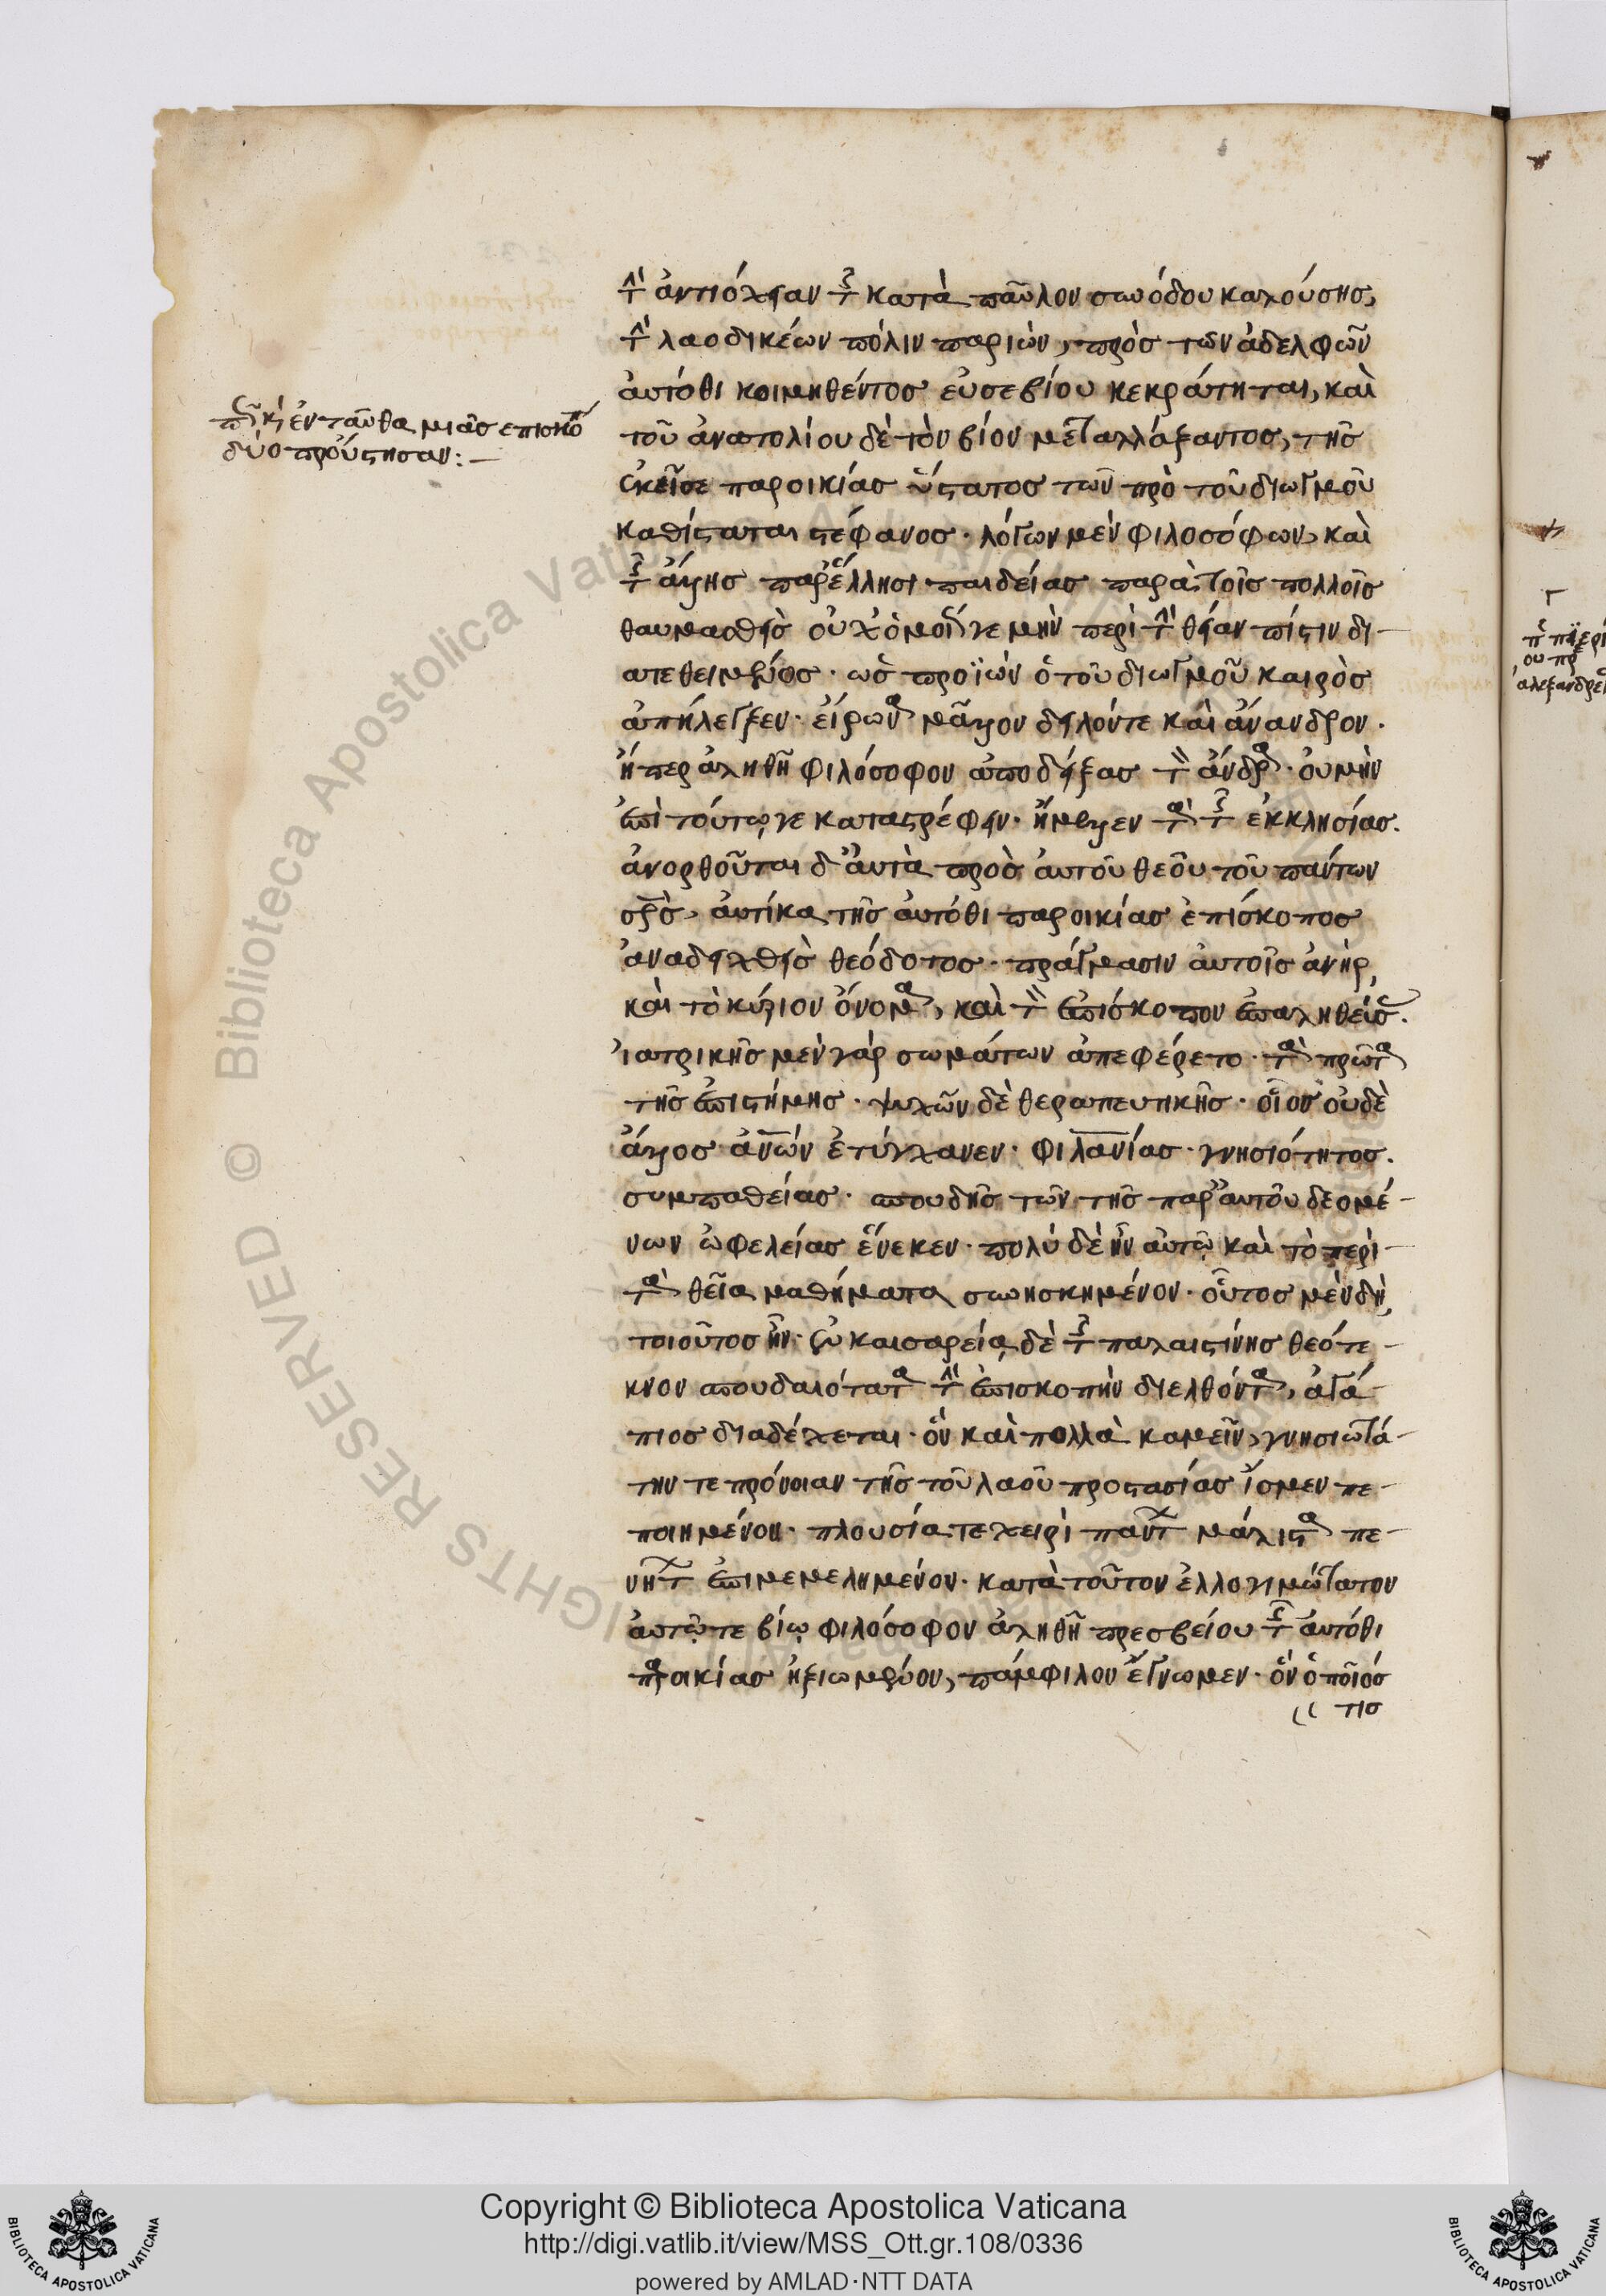 τὴν ἀντιόχειαν τῆς κατὰ παῦλον συνόδου καλούσης,
τὴν λαοδικέων πόλιν παριὼν, πρὸς τῶν ἀδελφῶν
αὐτόθι κοιμηθέντος εὐσεβίου κεκράτηται, καὶ
τοῦ ἀνατολίου δὲ τὸν βίον μεταλλάξαντος, τῆς
ἐκεῖσε παροικίας ὕστατος τῶν πρὸ τοῦ διωγμοῦ
καθίσταται στέφανος· λόγων μὲν φιλοσόφων, καὶ
τῆς ἄλλης παρ' ἕλλησι παιδείας παρὰ τοῖς πολλοῖς
θαυμασθεὶς οὐχ ὁμοίως γε μὴν περὶ τὴν θείαν πίστιν δι-
ατεθειμένος· ὡς προϊὼν ὁ τοῦ διωγμοῦ καιρὸς
ἀπήλεγξεν· εἴρωνα μᾶλλον δειλόν τε καὶ ἄνανδρον·
ἤπερ ἀληθῆ φιλόσοφον ἀποδείξας τὸν ἄνδρα· οὐ μὴν
ἐπὶ τούτῳ γε καταστρέφειν· ἤμελλεν τὰ τῆς ἐκκλησίας.
ἀνορθοῦται δ' αὐτὰ πρὸς αὐτοῦ θεοῦ τοῦ πάντων
σρς, αὐτίκα τῆς αὐτόθι παροικίας ἐπίσκοπος
ἀναδειχθεὶς θεόδοτος· πράγμασιν αὐτοῖς ἀνὴρ,
καὶ τὸ κύριον ὄνομα, καὶ τὸν ἐπίσκοπον ἐπαληθεύσας.
ἰατρικῆς μὲν γὰρ σωμάτων ἀπεφέρετο· τὰ πρῶτα
τῆς ἐπιστήμης· ψυχῶν δὲ θεραπευτικῆς· οἷος οὐδὲ
ἄλλος ἀνων ἐτύγχανεν· φιλανίας· γνησιότητος.
συμπαθείας· σπουδῆς τῶν τῆς παρ' αὐτοῦ δεομέ-
νων ὠφελείας ἕνεκεν· πολὺ δὲ ἦν αὐτῷ καὶ τὸ περὶ
τὰ θεῖα μαθήματα συνησκημένον· οὗτος μὲν δὴ
τοιοῦτος ἦν· ἐν καισαρείᾳ δὲ τῆς παλαιστίνης θεότε-
κνον σπουδαιότατα τὴν ἐπισκοπὴν διελθόντα, ἀγά-
πιος διαδέχεται· ὃν καὶ πολλὰ καμεῖν, γνησιωτά-
την τε πρόνοιαν τῆς τοῦ λαοῦ προστασίας ἴσμεν πε-
ποιημένον· πλουσίᾳ τε χειρὶ πάντων μάλιστα πε-
νήτων ἐπιμεμελημένον· κατὰ τοῦτον ἐλλογιμώτατον
αὐτῷ τε βίῳ φιλόσοφον ἀληθῆ πρεσβείου τῆς αὐτόθι
παροικίας ἠξιωμένον, πάμφιλον ἔγνωμεν· ὃν ὁποῖός
τις
ἐνταῦθα μιᾶς ἐπισκο
δύο προύστησαν:
πιερί
ου πρ
ἀλεξανδρεί
Copyright © Biblioteca Apostolica Vaticana
http://digi.vatlib.it/view/MSS_Ott.gr.108/0336
powered by AMLAD·NTT DATA
BIBLIOTECA APOSTOLICA VATICANA
BIBLIOTECA APOSTOLICA VATICANA